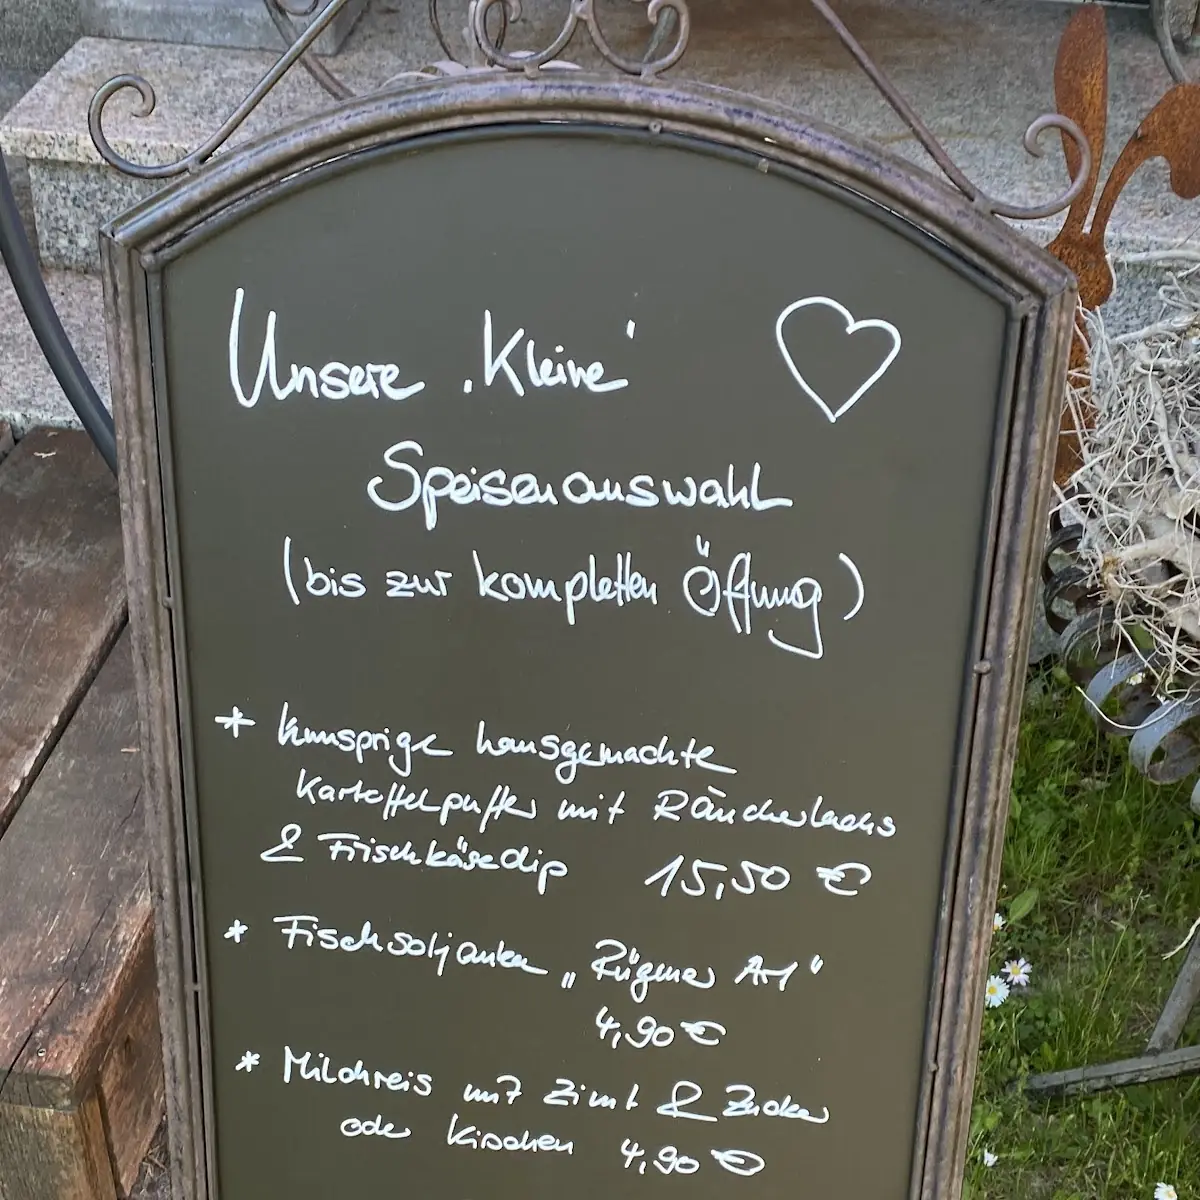 Unsere ‚Kleine‘
Speisenauswahl
(bis zur kompletten Öffnung)
* knusprige hausgemachte
Kartoffelpuffer mit Räucherlachs
& Frischkäsedip 15,50 €
* Fischsoljanka „Rügener Art“
4,90 €
* Milchreis mit Zimt & Zucker
oder Kirschen 4,90 €